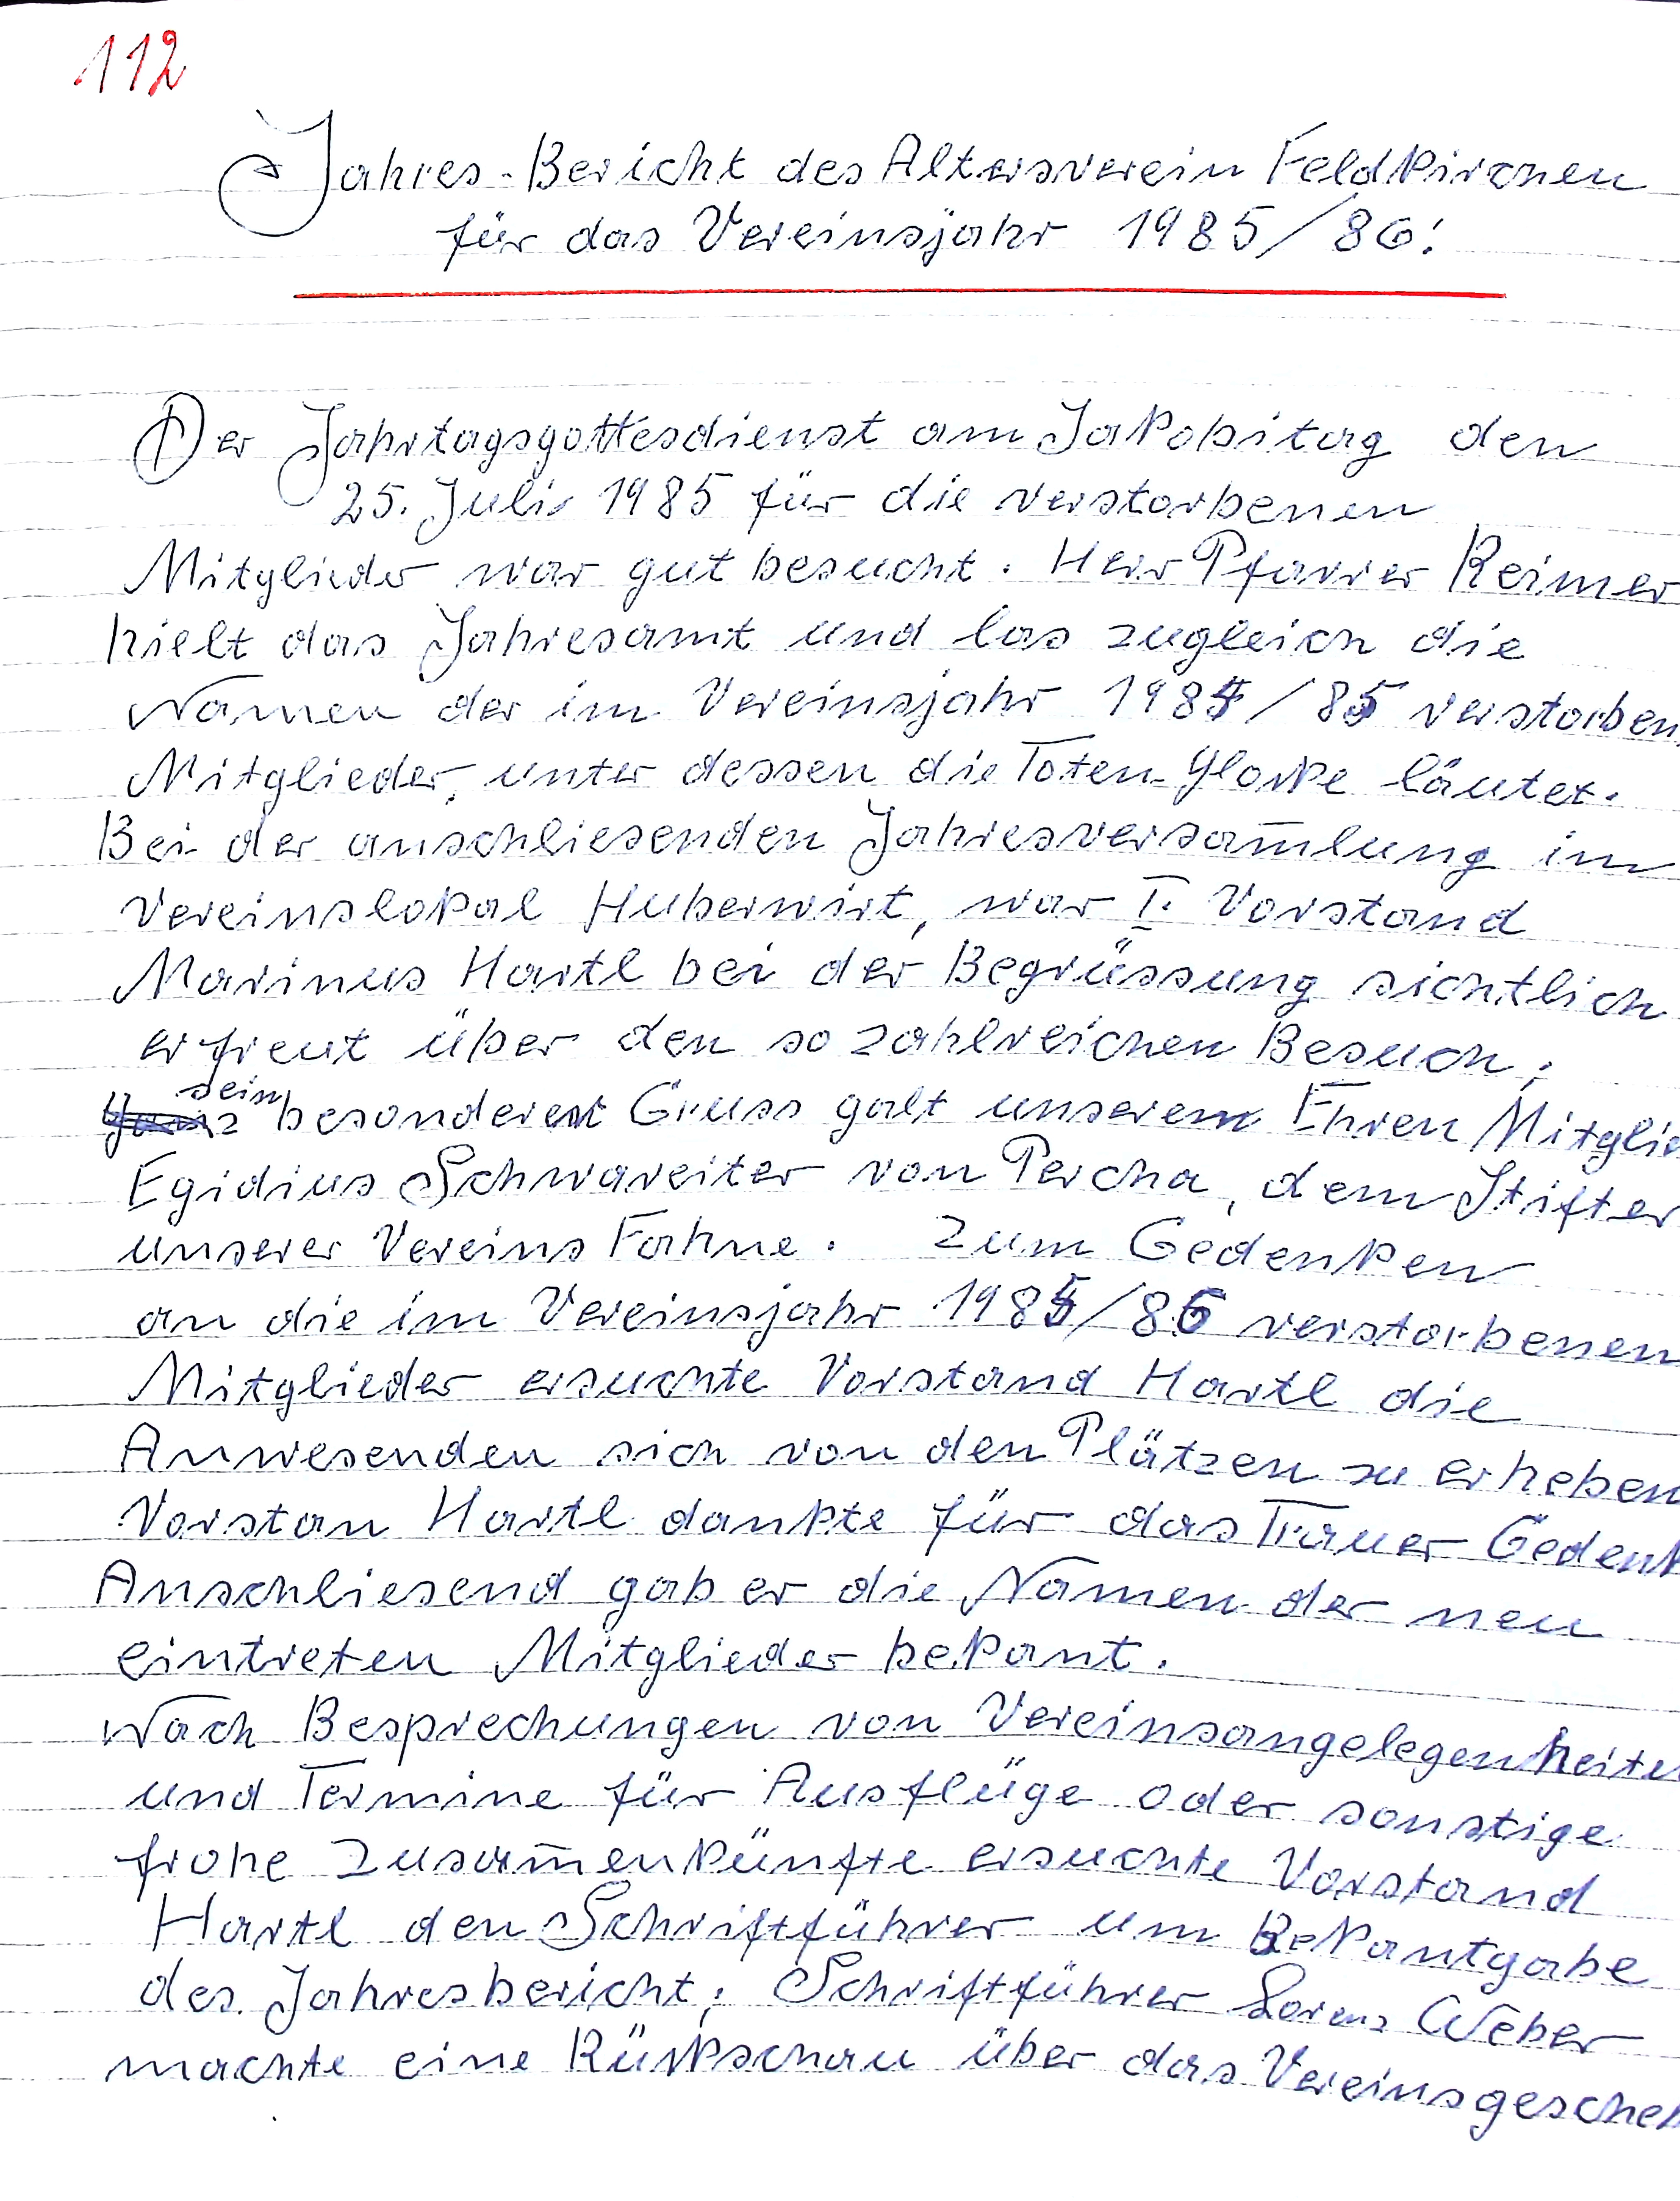 112
Jahres-Bericht des Altersverein Feldkirchen
für das Vereinsjahr 1985/86!
Der Jahrtagsgottesdienst am Jakobitag den
25. Juli 1985 für die verstorbenen
Mitglieder war gut besucht. Herr Pfarrer Reimer
hielt das Jahresamt und las zugleich die
Namen der im Vereinsjahr 1984/85 verstorben
Mitglieder, unter dessen die Toten-Glocke läutet.
Bei der anschliesenden Jahresversam̅lung im
Vereinslokal Huberwirt, war I. Vorstand
Marinus Hartl bei der Begrüssung sichtlich
erfreut über den so zahlreichen Besuch;
sein
besonderer Gruss galt unserem Ehren Mitglie
Egidius Schwareiter von Percha, dem Stifter
unserer Vereins Fahne. Zum Gedenken
an die im Vereinsjahr 1985/86 verstorbenen
Mitglieder ersuchte Vorstand Hartl die
Anwesenden sich von den Plätzen zu erheben
Vorstan Hartl dankte für das Trauer Gedenk
Anschliesend gab er die Namen der neu
eintreten Mitglieder bekant.
Nach Besprechungen von Vereinsangelegenheiten
und Termine für Ausflüge oder sonstige
frohe Zusam̅enkünfte ersuchte Vorstand
Hartl den Schriftführer um Bekantgabe
des Jahresbericht; Schriftführer Lorenz Weber
machte eine Rückschau über das Vereinsgescheh